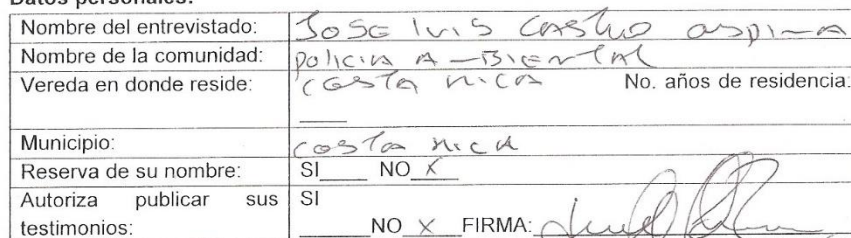 Datos personales:
Nombre del entrevistado: Jose luis Castro ospina
Nombre de la comunidad: policia Ambiental
Vereda en donde reside: Costa rica No. años de residencia:
____
Municipio: costa rica
Reserva de su nombre: SI____ NO_X_
Autoriza publicar sus testimonios: SI
NO_X_ FIRMA: